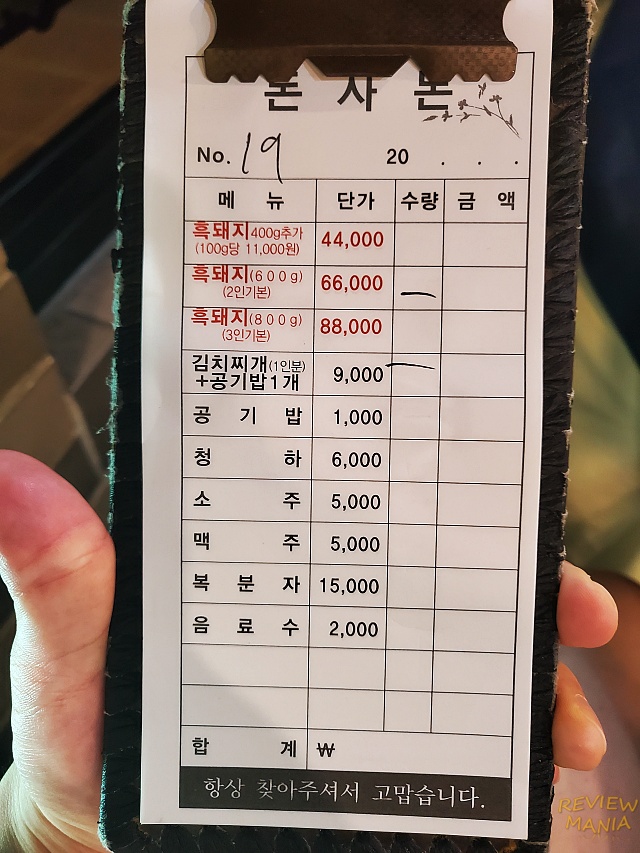 돈 사 돈
No. 19 20 . . .
메 뉴 단가 수량 금 액
흑돼지 400g추가 44,000
(100g당 11,000원)
흑돼지(600g) 66,000
(2인기본)
흑돼지(800g) 88,000
(3인기본)
김치찌개(1인분)
+공기밥1개 9,000
공 기 밥 1,000
청 하 6,000
소 주 5,000
맥 주 5,000
복 분 자 15,000
음 료 수 2,000
합 계 ₩
항상 찾아주셔서 고맙습니다.
REVIEW
MANIA